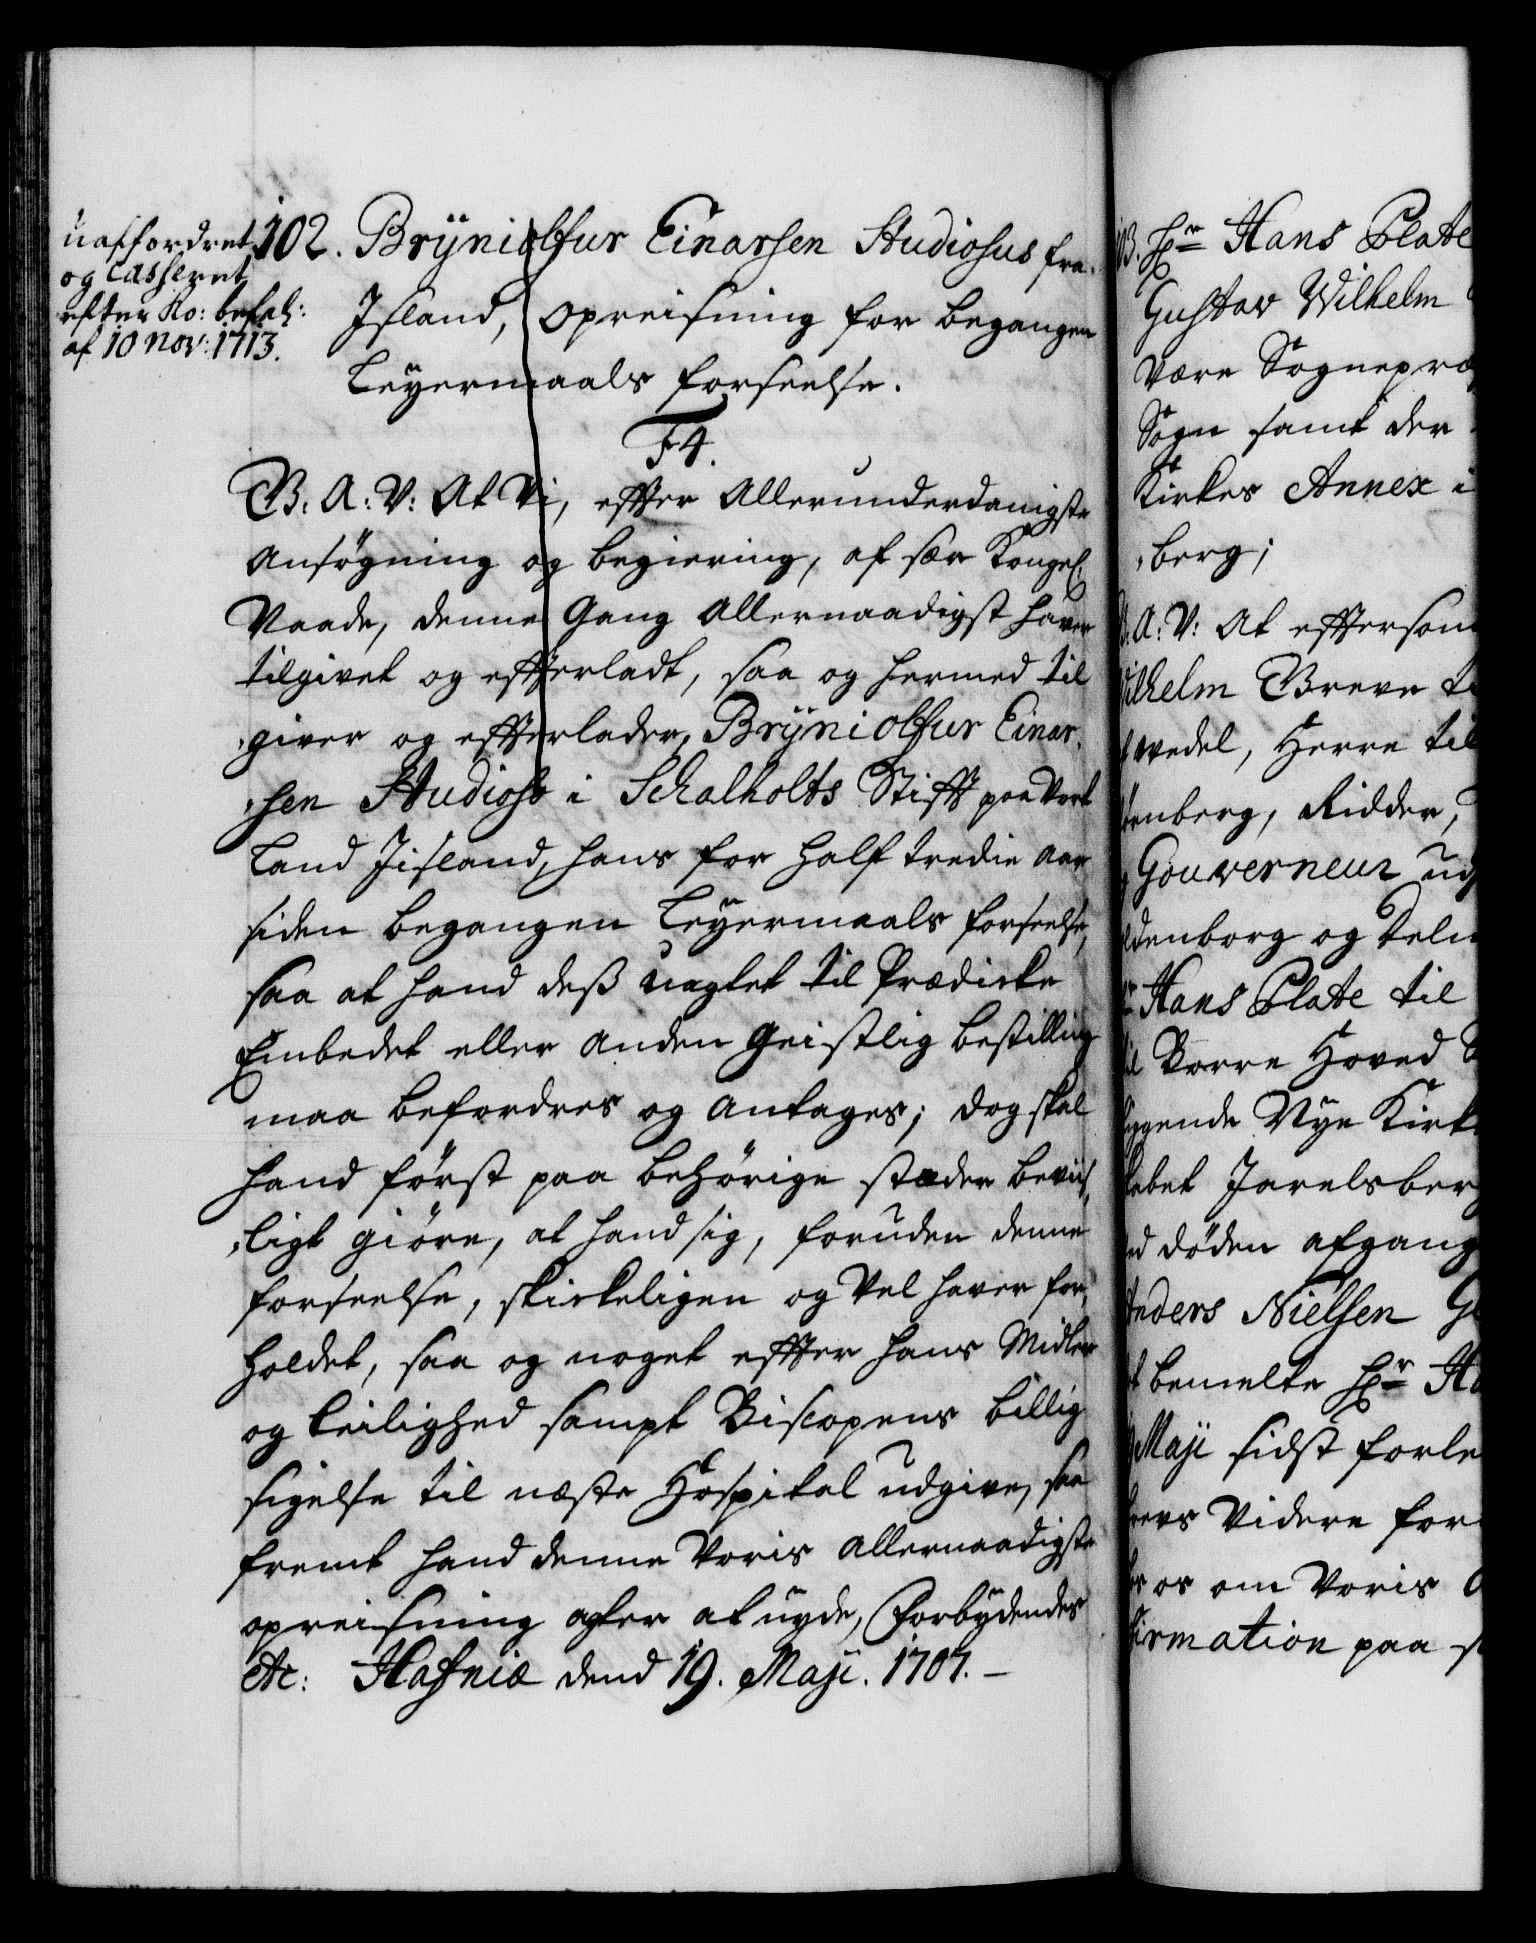 uaffordret
og Casseret
efter Ko: befal:
af 10 Nov: 1713.
102. Brÿniolfur Einarsen Studiosus fra
Jsland, Opreisning for begangen
Leÿermaals forseelse.
F4.
B. A: V: At Vi, effter Allerunderdanigste
Ansøgning og begiering, af sær Kongel:
Naade, denne Gang Allernaadigst haver
tilgivet og effterladt, saa og hermed til
giver og effterlader, Brÿniolfur Einar,
,sen Studioso i Schalholts Stifft paa Vort
Land Jisland, hans for half tredie Aar
siden begangen Leÿermaals forseelse,
saa at hand deß uagtet til Prædicke
Embedet eller Anden Geistlig bestilling
maa befordres og Antages; dog skal
hand først paa behørige stæder beviis,
,ligt giøre, at hand sig, foruden denne
forseelse, skickeligen og Vel haver for,
holdet, saa og noget effter hans Midler
og Leilighed sampt Biscopens billig
sigelse til næste Hospital udgive, saa
fremt hand denne Voris Allernaadigste
opreisning agter at nyde, Forbydendes
etc: Hafniæ dend 19. Maji. 1707.
103. Hr Hans Plate
Gustav Wilhelm
Være Sognepræ
Sogn samt der
Kirkes Annex i
,berg;
B. A: V: At efftersom
Wilhelm Breve ti
wedel, Herre til
enberg, Ridder,
Gouverneur ud
ldenborg og Delm
Hr Hans Plate til
til Borre Hoved S
ggende Nye Kirk
kabet Jarelsberg
ed døden afgang
Anders Nielsen G
t bemelte Hr Ha
Maji sidst forle
brevs Videre for
er os om Voris
firmation paa s